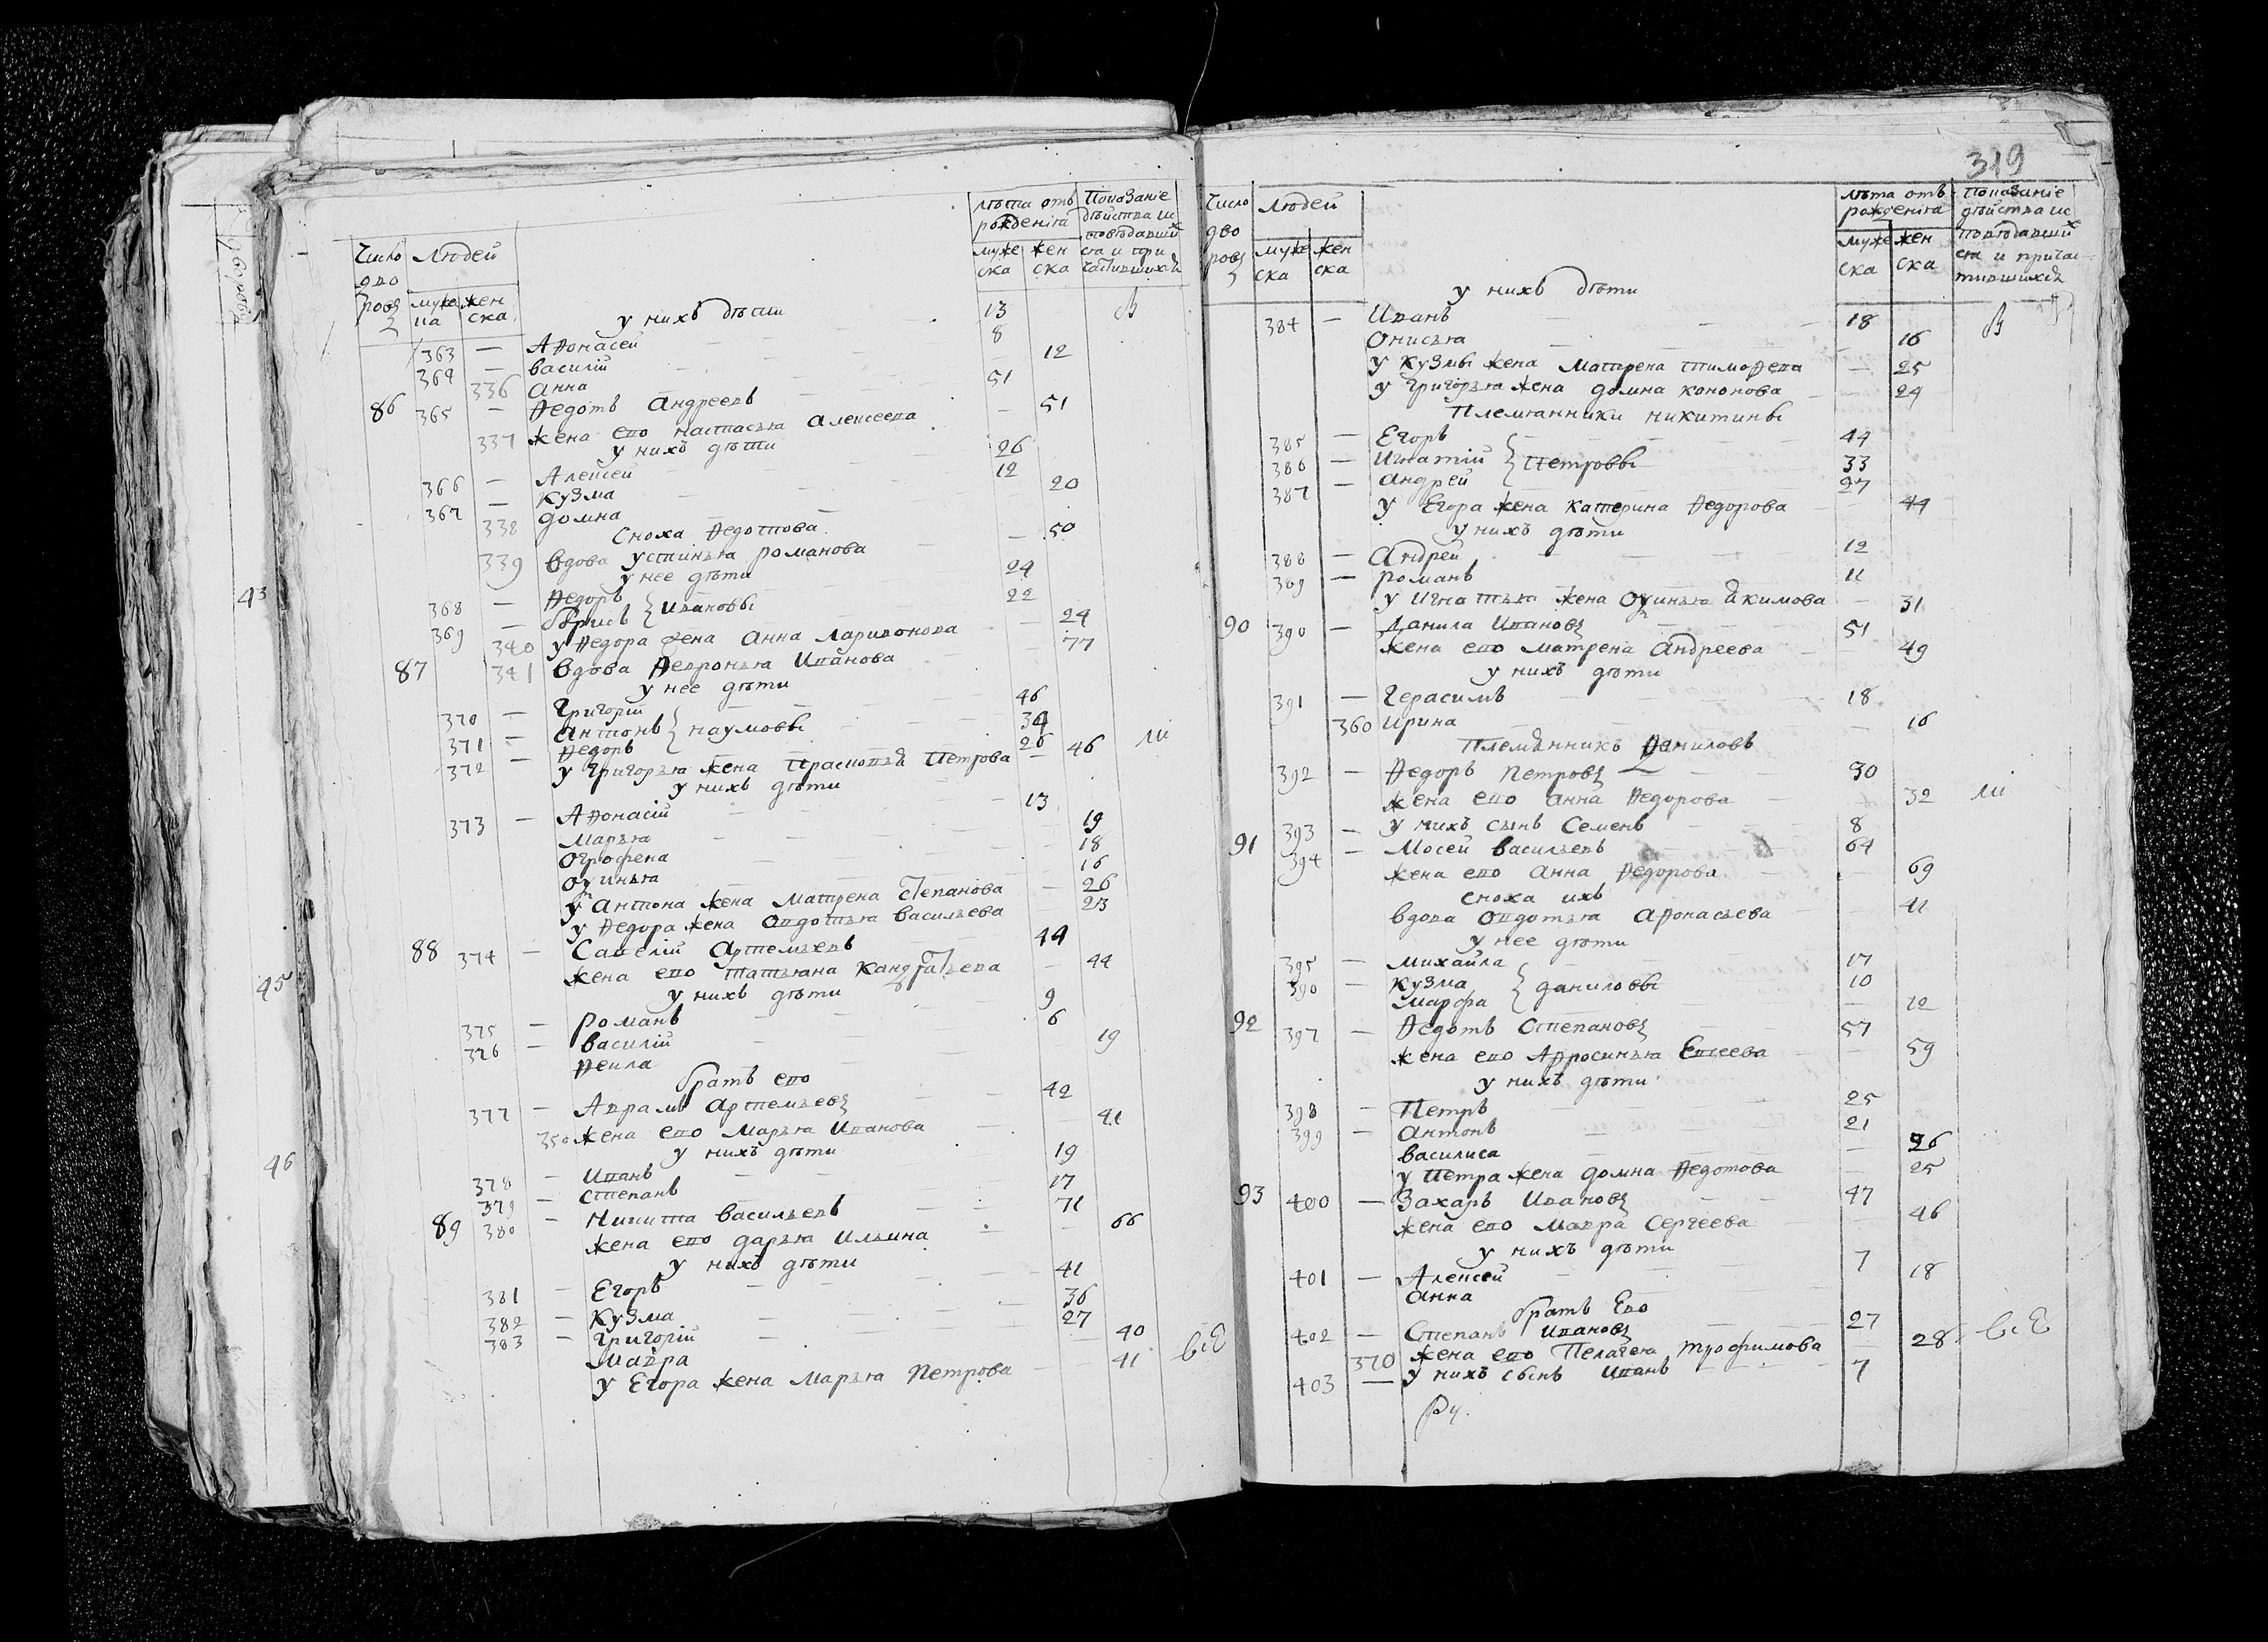 Число дворовъ
Людей
мужеска
женска
лѣта отъ рожденiя
мужеска
женска
Показанiе дѣйства исповѣдавшихся и причастившихся
у нихъ дѣти
363 — Аѳонасей — 13 В
364 — василiй — 8
336 анна — 12
86 365 — Ѳедотъ андреевъ — 51
337 жена ево настасья алексеева — 51
у нихъ дѣти
366 — Алексей — 26
367 — кузма — 12
338 домна — 20
сноха Ѳедотова
339 вдова устинья романова — 50
у нее дѣти
368 — Ѳедоръ } ивановы 24
369 — борисъ 22
340 у Ѳедора жена анна ларивонова 24
87 341 вдова Ѳевронья иванова 77
у нее дѣти
370 — григорiй 46
371 — антонъ } наумовы 34
372 — Ѳедоръ 26
у григорья жена прасковья петрова — 46 ли
у нихъ дѣти
373 — Аѳонасiй — 13
марья — 19
огрофена — 18
оуинья — 16
у антона жена матрена степанова — 26
у Ѳедора жена овдотья васильева — 23
88 374 — Савелiй артемьевъ 44
жена ево татьяна кандратьева — 44
у нихъ дѣти
375 — романъ 9
376 — василiй 6
Ѳекла 19
братъ ево
377 — Аврамъ артемьевъ 42
350 жена ево марья иванова 41
у нихъ дѣти
378 — иванъ 19
379 — степанъ 17
89 380 — никита васильевъ 71
жена ево дарья ильина — 66
у нихъ дѣти
381 — Егоръ 41
382 — кузма 36
383 — григорiй 27
мавра 40
у Егора жена марья петрова 41 всѣ
319
Число дворовъ
людей
мужеска
женска
лѣта отъ рожденiя
мужеска
женска
показанiе дѣйства исповѣдавшихся и причастившихся
у нихъ дѣти
384 — иванъ — 18 В
онисья — 16
у кузмы жена матрена тимоѳева — 25
у григорья жена домна кононова — 24
племянники никитины
385 — Егоръ 44
386 — игнатiй } петровы 33
387 — андрей 27
у Егора жена катерина Ѳедорова — 44
у нихъ дѣти
388 — андрей 12
389 — романъ 11
у игнатья жена оуинья якимова — 31
90 390 — данила ивановъ 51
жена ево матрена андреева 49
у нихъ дѣти
391 — герасимъ 18
360 ирина 16
племянникъ даниловъ
392 — Ѳедоръ петровъ 30
жена ево анна Ѳедорова — 32 ли
393 — у нихъ сынъ Семенъ 8
91 394 — мосей васильевъ 64
жена ево анна Ѳедорова 69
сноха ихъ
вдова овдотья аѳонасьева — 41
у нее дѣти
395 — михайла 17
396 — кузма } даниловы 10
марфа — 12
92 397 — Ѳедотъ степановъ 57
жена ево Аѳросинья Евсеева — 59
у нихъ дѣти
398 — петръ 25
399 — антонъ 21
василиса — 26
у петра жена домна Ѳедотова — 25
93 400 — Захаръ ивановъ 47
жена ево мавра сергеева 46
у нихъ дѣти
401 — Алексей 7
анна 18
братъ Ево
402 — степанъ ивановъ 27
370 жена ево пелагея трофимова — 28 всѣ
403 — у нихъ сынъ иванъ 7
43
45
46